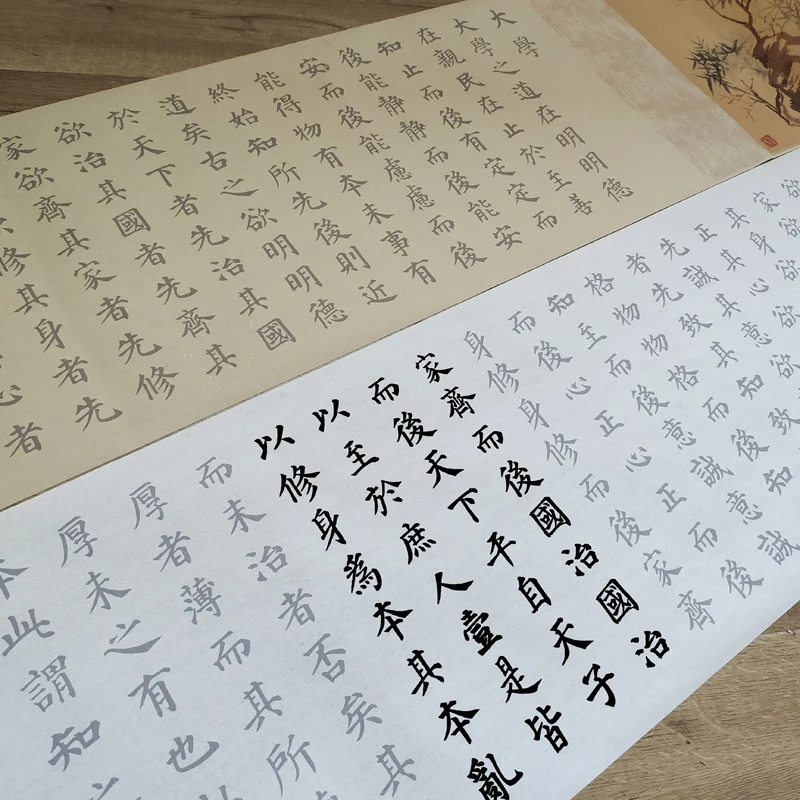 大學
大學之道在明明德
在親民在止於至善
知止而後有定定而
後能静静而後能安
安而後能慮慮而後
能得物有本末事有
終始知所先後則近
道矣古之欲明明德
於天下者先治其國
欲治其國者先齊其
家欲齊其家者先修
修其身者先
心者
欲
家欲
其身欲
正其心欲
先誠其意欲
者先致其知致
格物物格而後知
知至而後意誠意誠
而後心正心正而後
身修身修而後家齊
家齊而後國治國治
而後天下平自天子
以至於庶人壹是皆
以修身為本其本亂
而未治者否矣其
厚者薄而其所
厚未之有也
本此謂知